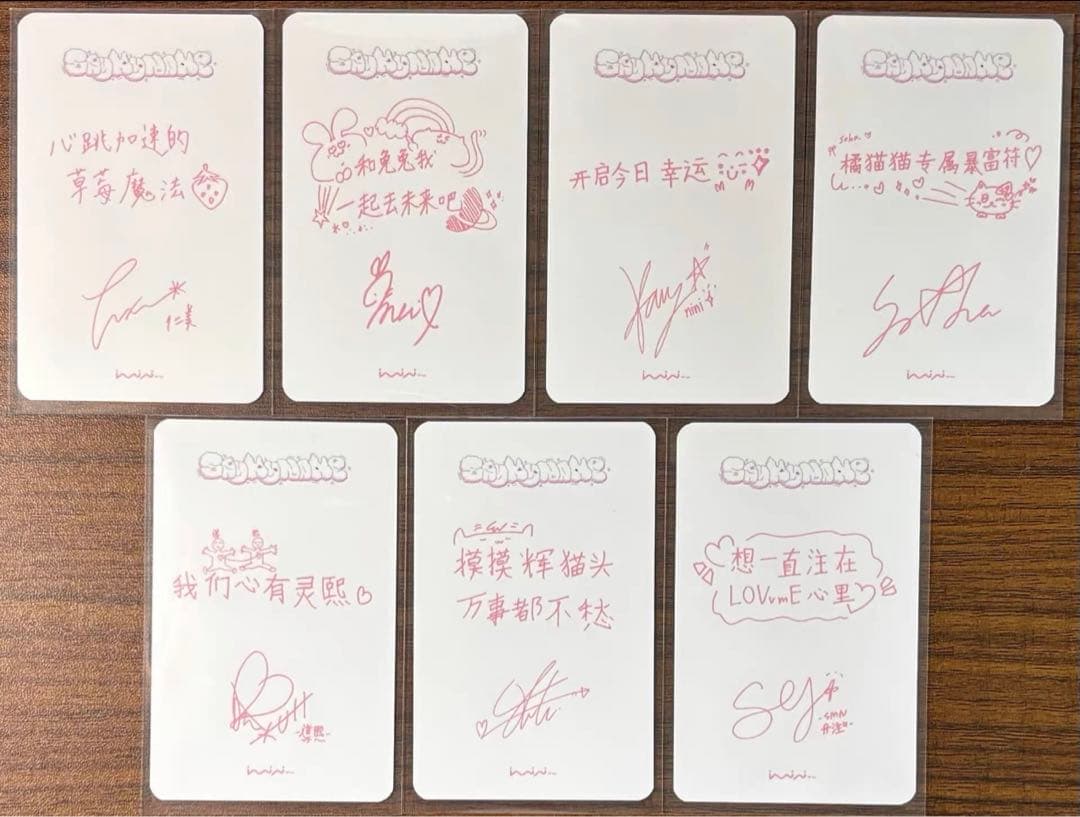 SAY MY NAME
心跳加速的
草莓魔法
仁美
SAY MY NAME
和兔兔我
一起去未来吧
mei
SAY MY NAME
开启今日幸运
nini
SAY MY NAME
soha
橘猫猫专属暴富符
SAY MY NAME
我们心有灵熙
SAY MY NAME
摸摸辉猫头
万事都不愁
SAY MY NAME
想一直注在
LOVvmE心里
-SMN